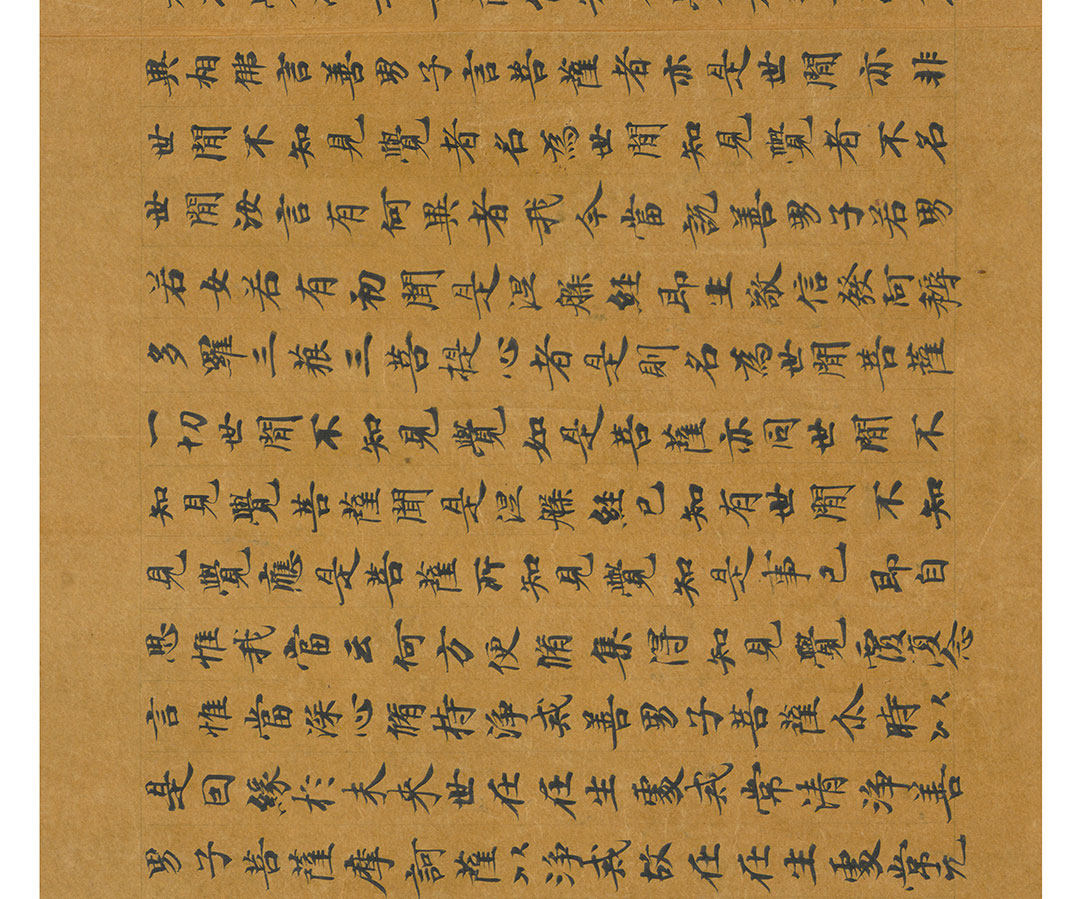 異相佛言善男子言菩薩者亦是世間亦非
世間不知見覺者名為世間知見覺者不名
世間汝言有何異者我今當說善男子若男
若女若有初聞是涅槃經即生敬信發阿耨
多羅三藐三菩提心者是則名為世間菩薩
一切世間不知見覺如是菩薩亦同世間不
知見覺菩薩聞是涅槃經已知有世間不知
見覺應是菩薩所知見覺知是事已即自
思惟我當云何方便脩集得知見覺覆復念
言惟當深心脩持淨戒善男子菩薩尒時以
是因緣於未來世在在生處戒常清淨善
男子菩薩摩訶薩以淨戒故在在生處常无